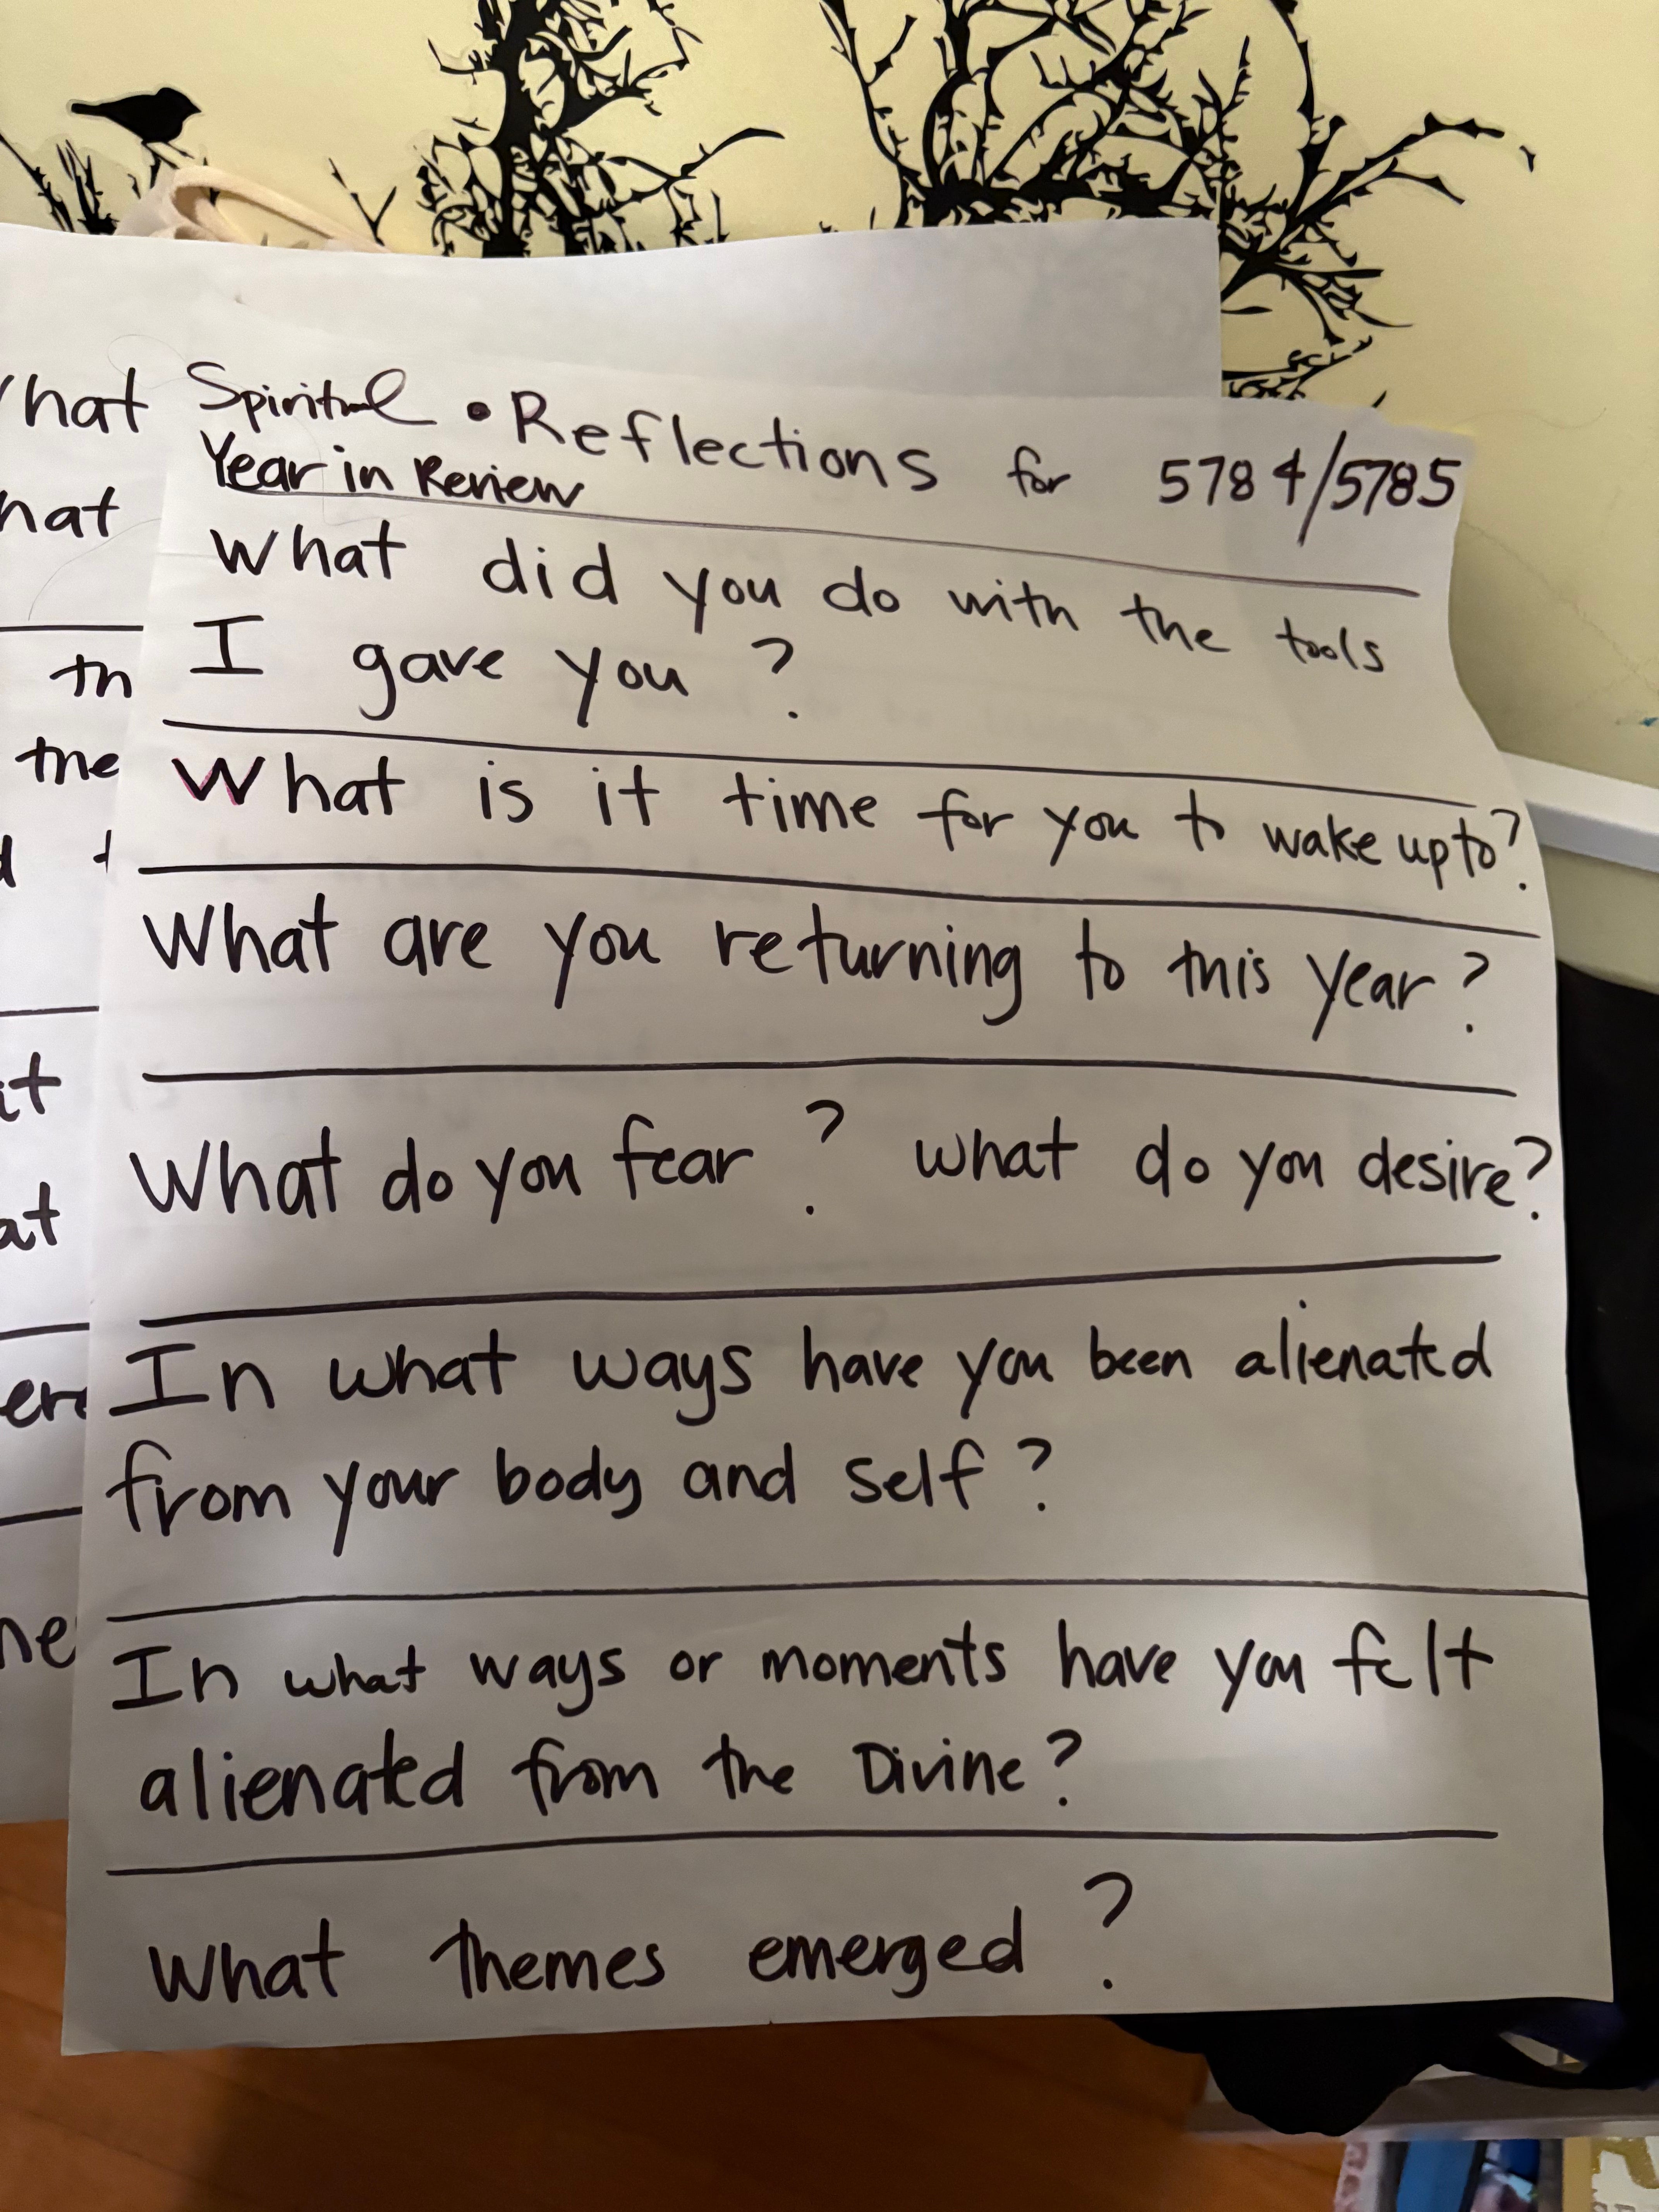 Spiritual • Reflections for 5784/5785
Year in Review
What did you do with the tools
I gave you?
What is it time for you to wake up to?
What are you returning to this year?
What do you fear? what do you desire?
In what ways have you been alienated
from your body and self?
In what ways or moments have you felt
alienated from the Divine?
What themes emerged?
hat
hat
th
the
it
at
ere
ne